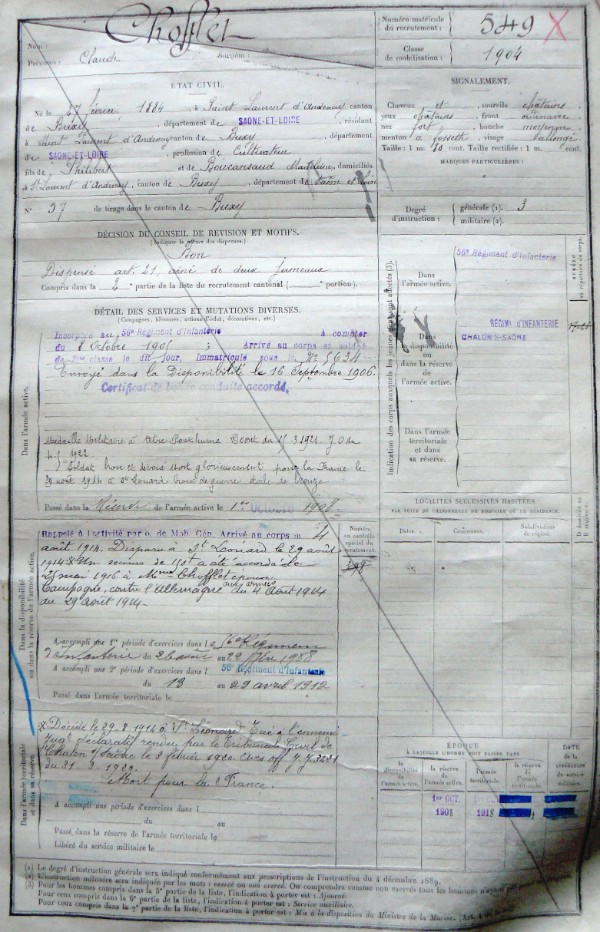 Chofflet
Nom :
Prénoms : Claude Surnom :
Numéro matricule du recrutement : 549
Classe de mobilisation : 1904
ÉTAT CIVIL.
Né le 27 février 1884, à Saint Laurent d'Andenay, canton
de Buxy, département de SAONE-ET-LOIRE, résidant
à Saint Laurent d'Andenay, canton de Buxy, département
de SAONE-ET-LOIRE, profession de Cultivateur
fils de Philibert et de domiciliés
à St Laurent d'Andenay, canton de Buxy, département de Saône et Loire
N° 37 de tirage dans le canton de Buxy
SIGNALEMENT.
Cheveux et sourcils châtains
yeux châtains front ordinaire
nez fort bouche moyenne
menton à fossette visage
Taille : 1 m. cent. Taille rectifiée : 1 m. cent.
MARQUES PARTICULIÈRES :
Degré d'instruction : générale (1). 3
militaire (2).
DÉCISION DU CONSEIL DE REVISION ET MOTIFS.
Bon
Dispensé art. 21, aîné de deux jumeaux
Compris dans la 2e partie de la liste du recrutement cantonal ( portion).
DÉTAIL DES SERVICES ET MUTATIONS DIVERSES.
(Campagnes, blessures, actions d'éclat, décorations, etc.)
Dans l'armée active.
Incorporé au 56e Régiment d'Infanterie à compter
du 8 Octobre 1905 ; Arrivé au corps et soldat
de 2me classe le dit jour, Immatriculé sous le N° 5634
Envoyé dans la Disponibilité le 16 Septembre 1906.
Certificat de bonne conduite accordé.
Médaille Militaire à titre Posthume
Soldat brave et dévoué mort glorieusement pour la France le
29 août 1914 à St Léonard croix de guerre étoile de bronze
Passé dans la Réserve de l'armée active le 1er Octobre 1908
Indication des corps auxquels les jeunes gens sont affectés (3).
Dans l'armée active.
56e Régiment d'Infanterie
Dans la disponibilité ou dans la réserve de l'armée active.
RÉGIMt D'INFANTERIE
CHALON S-SAÔNE
Dans l'armée territoriale et dans sa réserve.
LOCALITÉS SUCCESSIVES HABITÉES
Dates. Communes. Subdivisions de région.
Dans la disponibilité ou dans la réserve de l'armée active.
Rappelé à l'activité par o. de Mob. Gén. Arrivé au corps le 4
août 1914. Disparu à St Léonard le 29 août
1914. Un secours de 150f a été accordé le
mai 1916 à Mme Chofflet épouse
Campagne contre l'Allemagne aux armées du 4 Août 1914
au 29 Août 1914
Numéro au contrôle spécial du recrutement.
A accompli une 1re période d'exercices dans le 56e Régiment
d'Infanterie du au 1908
A accompli une 2e période d'exercices dans le 56e Régiment d'Infanterie
du 13 au 29 avril 1912
Passé dans l'armée territoriale le
Dans l'armée territoriale et dans sa réserve.
Décédé le 29.8.1914 à St Léonard Tué à l'ennemi
Jugt déclaratif rendu par le Tribunal Civil de
Chalon s/ Saône le février 1920.
Mort pour la France.
A accompli une période d'exercices dans l
du au
Passé dans la réserve de l'armée territoriale le
Libéré du service militaire le
ÉPOQUE
À LAQUELLE L'HOMME DOIT PASSER DANS
la disponibilité de l'armée active. la réserve de l'armée active. l'armée territoriale. la réserve de l'armée territoriale.
DATE DE LA LIBÉRATION du service militaire.
1er OCT.
1908 1918
(1) Le degré d'instruction générale sera indiqué conformément aux prescriptions de l'instruction du 4 décembre 1889.
(2) L'instruction militaire sera indiquée par les mots : exercé ou non exercé.
(3) Pour les hommes compris dans la 5e partie de la liste, l'indication à porter est : Ajourné.
Pour ceux compris dans la 6e partie de la liste, l'indication à porter est : Service auxiliaire.
Pour ceux compris dans la 7e partie de la liste, l'indication à porter est : Mis à la disposition du Ministre de la Marine.